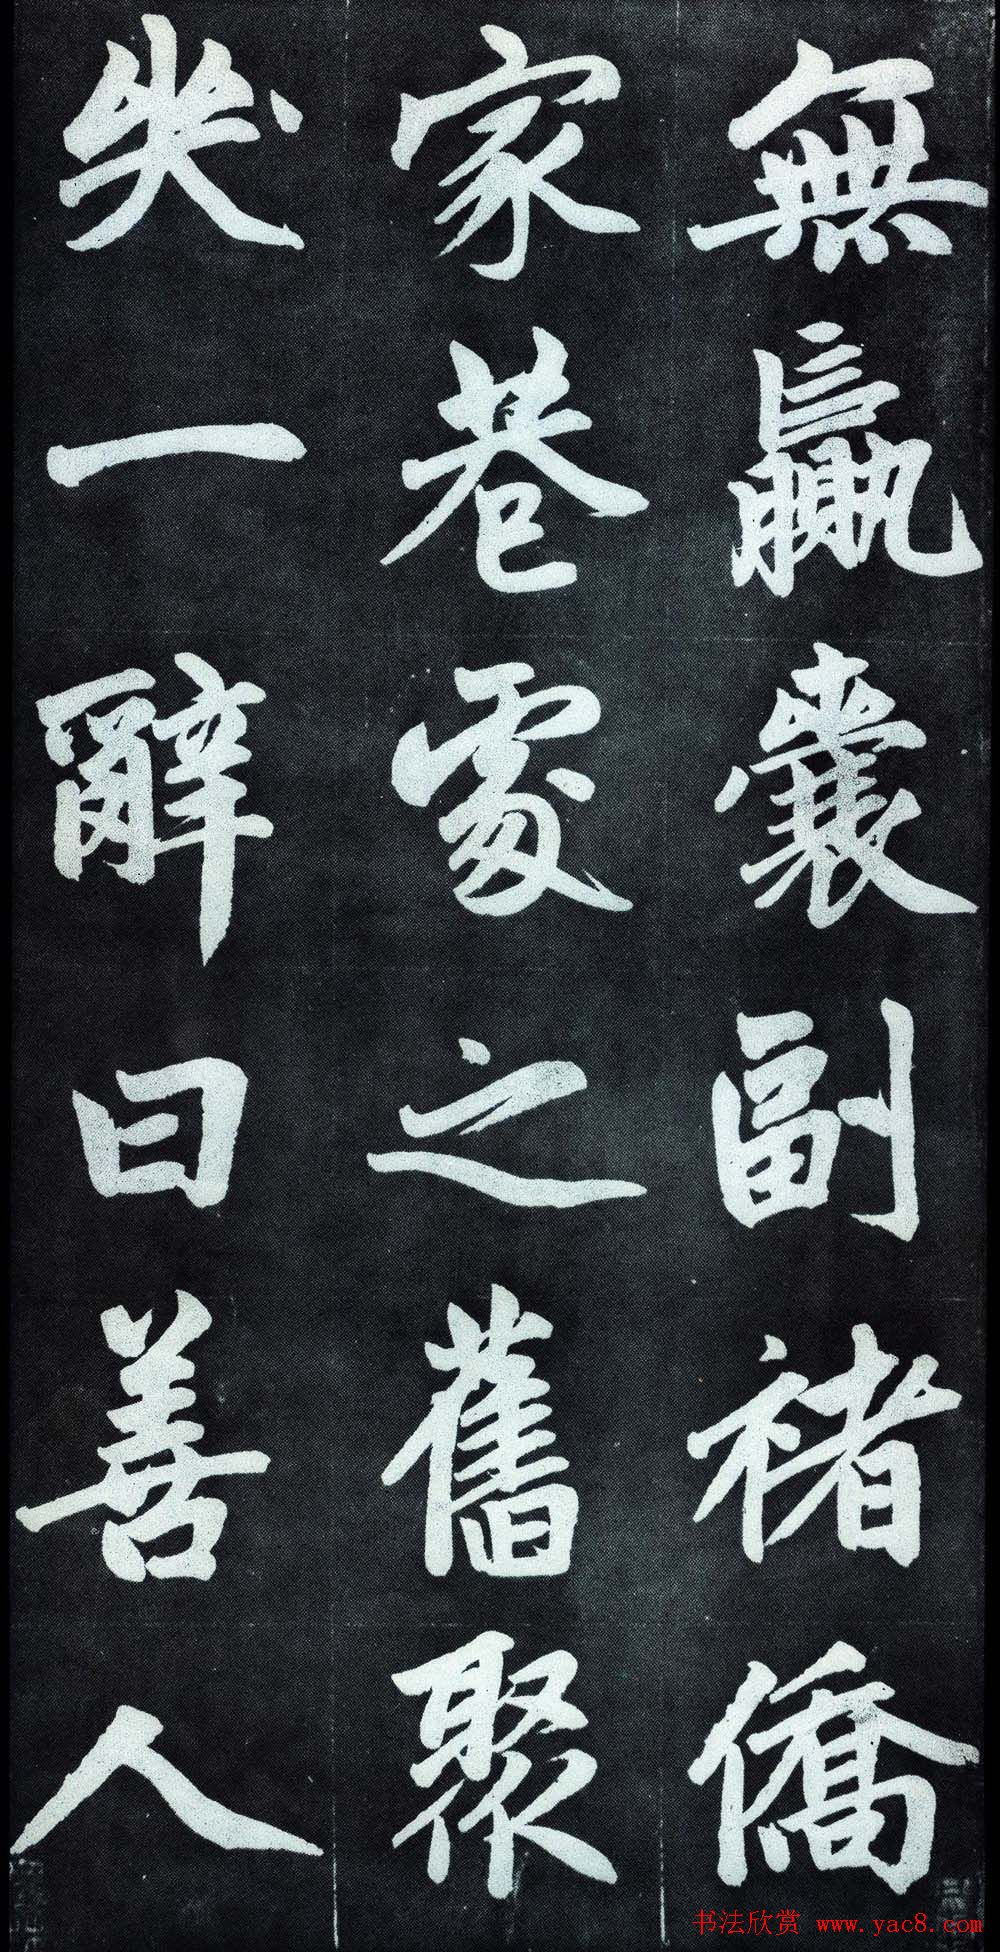 無贏囊副褚僑
家巷處之舊聚
哭一辭曰善人
书法欣赏 www.yac8.com